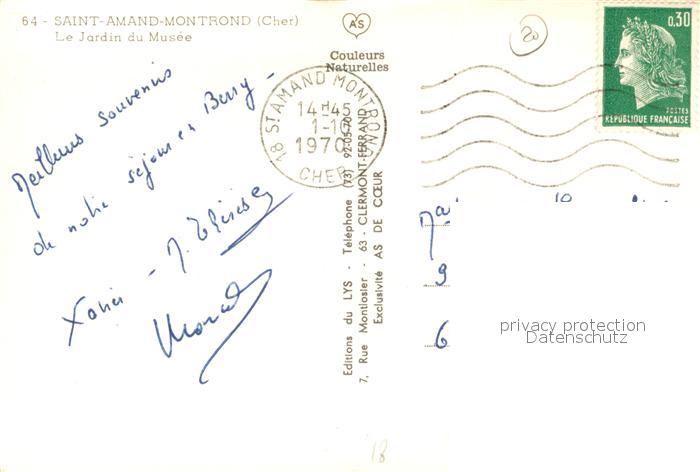 64 - SAINT-AMAND-MONTROND (Cher)
Le Jardin du Musée
AS
Couleurs
Naturelles
20
0,30
POSTES
RÉPUBLIQUE FRANÇAISE
18 ST AMAND MONTROND
14H45
1-10
1970
CHER
Meilleurs souvenirs
de notre séjour en Berry -
Xavier - M. Thérèse
Editions du LYS - Téléphone (73)
7, Rue Montlosier - 63 - CLERMONT-FERRAND
Exclusivité AS DE CŒUR
9
6
privacy protection
Datenschutz
18